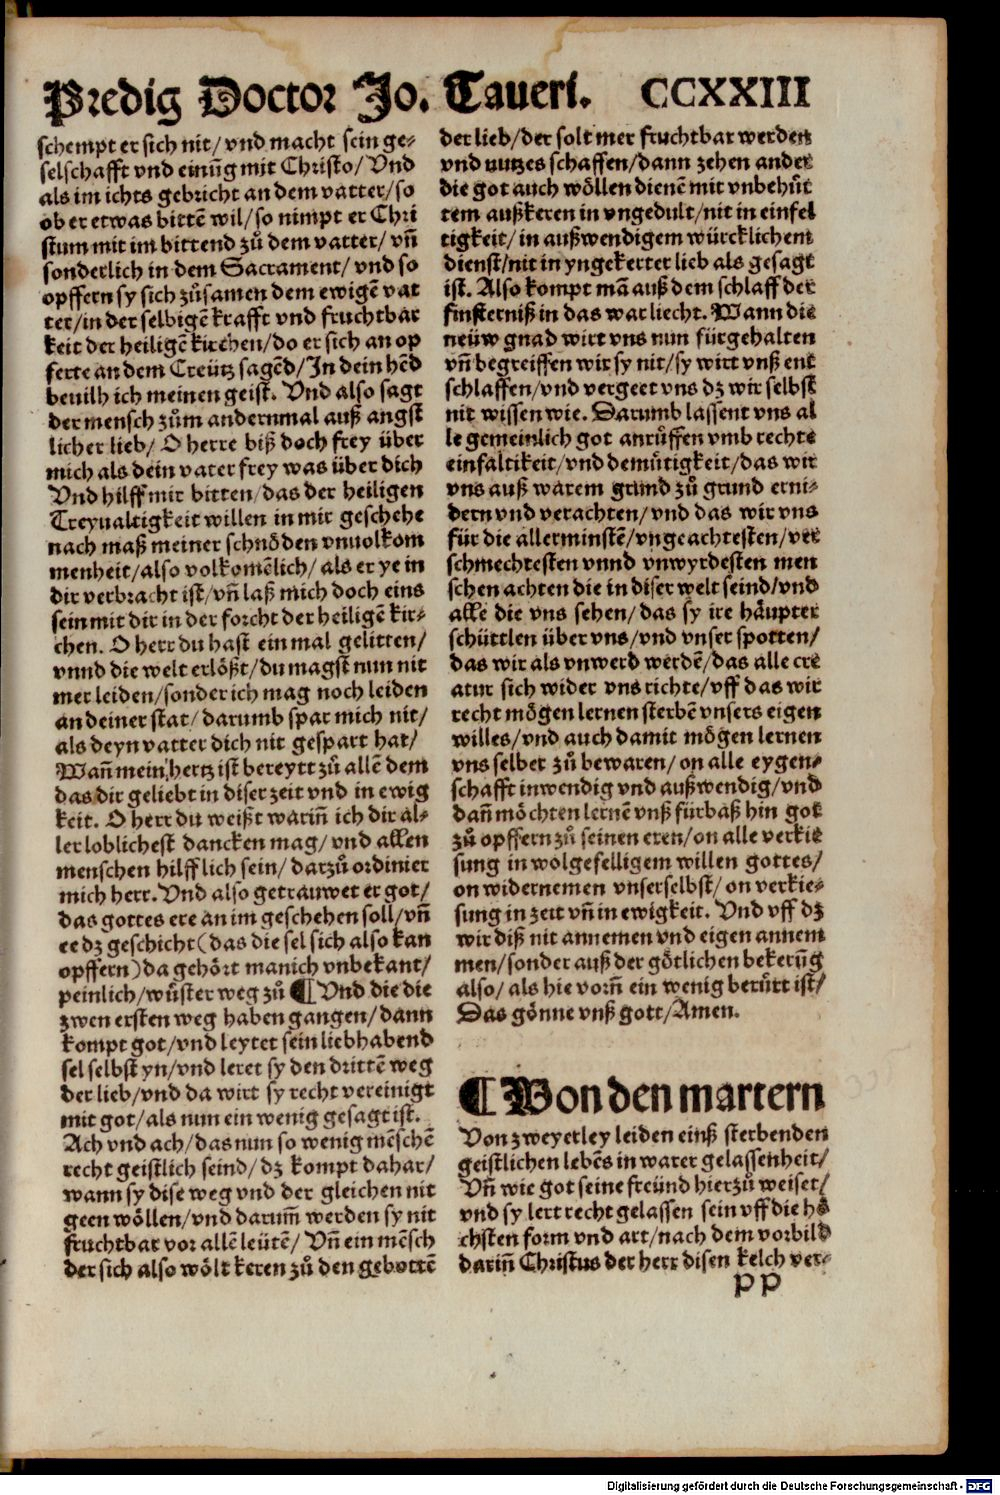 Predig Doctor Jo. Taueri. CCXXIII
schempt er sich nit/ vnd macht sein ge-
selschafft vnd einūg mit Christo/ Vnd
als im ichts gebricht an dem vatter/ so
ob er etwas bittē wil/ so nimpt er Chri
stum mit im bittend zů dem vatter/ vn̄
sonderlich in dem Sacrament/ vnd so
opffern sy sich zůsamen dem ewigē vat
ter/ in der selbigē krafft vnd fruchtbar
keit der heiligē kirchen/ do er sich an op
ferte an dem Creütz sagēd/ In dein hēd
beuilh ich meinen geist. Vnd also sagt
der mensch zům andernmal auß angst
licher lieb/ O herre biß doch frey über
mich als dein vater frey was über dich
Vnd hilff mir bitten/ das der heiligen
Treyualtigkeit willen in mir geschehe
nach maß meiner schnöden vnuolkom
menheit/ also volkomēlich/ als er ye in
dir verbracht ist/ vn̄ laß mich doch eins
sein mit dir in der forcht der heiligē kir-
chen. O herr du hast ein mal gelitten/
vnnd die welt erlößt/ du magst nun nit
mer leiden/ sonder ich mag noch leiden
an deiner stat/ darumb spar mich nit/
als deyn vatter dich nit gespart hat/
Wan̄ mein hertz ist bereytt zů allē dem
das dir geliebt in diser zeit vnd in ewig
keit. O herr du weißt warin̄ ich dir al-
ler loblichest dancken mag/ vnd allen
menschen hilfflich sein/ darzů ordinier
mich herr. Vnd also getrauwet er got/
das gottes ere an im geschehen soll/ vn̄
ee dz geschicht (das die sel sich also kan
opffern) da gehört manich vnbekant/
peinlich/ wůster weg zů ¶ Vnd die die
zwen ersten weg haben gangen/ dann
kompt got/ vnd leytet sein liebhabend
sel selbst yn/ vnd leret sy den drittē weg
der lieb/ vnd da wirt sy recht vereinigt
mit got/ als nun ein wenig gesagt ist.
Ach vnd ach/ das nun so wenig mēschē
recht geistlich seind/ dz kompt dahar/
wann sy dise weg vnd der gleichen nit
geen wöllen/ vnd darum̄ werden sy nit
fruchtbar vor allē leütē/ Vn̄ ein mēsch
der sich also wölt keren zů den gebottē
der lieb/ der solt mer fruchtbar werden
vnd nutzes schaffen/ dann zehen ander
die got auch wöllen dienē mit vnbehůt
tem außkeren in vngedult/ nit in einfel
tigkeit/ in außwendigem würcklichem
dienst/ nit in yngekerter lieb als gesagt
ist. Also kompt mā auß dem schlaff der
finsterniß in das war liecht. Wann die
neüw gnad wirt vns nun fürgehalten
vn̄ begreiffen wir sy nit/ sy wirt vnß ent
schlaffen/ vnd vergeet vns dz wir selbst
nit wissen wie. Darumb lassent vns al
le gemeinlich got anrůffen vmb rechte
einfaltikeit/ vnd demůtigkeit/ das wir
vns auß warem grund zů grund erni-
dern vnd verachten/ vnd das wir vns
für die allerminstē/ vngeachtesten/ ver
schmechtesten vnnd vnwyrdesten men
schen achten die in diser welt seind/ vnd
alle die vns sehen/ das sy ire häupter
schüttlen über vns/ vnd vnser spotten/
das wir als vnwerd werdē/ das alle cre
atur sich wider vns richte/ vff das wir
recht mögen lernen sterbē vnsers eigen
willes/ vnd auch damit mögen lernen
vns selber zů bewaren/ on alle eygen-
schafft inwendig vnd außwendig/ vnd
dan̄ möchten lernē vnß fürbaß hin got
zů opffern zů seinen eren/ on alle verkie
sung in wolgefelligem willen gottes/
on widernemen vnserselbst/ on verkie-
sung in zeit vn̄ in ewigkeit. Vnd vff dz
wir diß nit annemen vnd eigen annem
men/ sonder auß der götlichen bekerūg
also/ als hie vorn̄ ein wenig berürt ist/
Das gönne vnß gott/ Amen.
¶ Von den martern
Von zweyerley leiden einß sterbenden
geistlichen lebēs in warer gelassenheit/
Vn̄ wie got seine freünd hierzů weiset/
vnd sy lert recht gelassen sein vff die hö
chsten form vnd art/ nach dem vorbild
darin̄ Christus der herr disen kelch ver-
pp
Digitalisierung gefördert durch die Deutsche Forschungsgemeinschaft - DFG